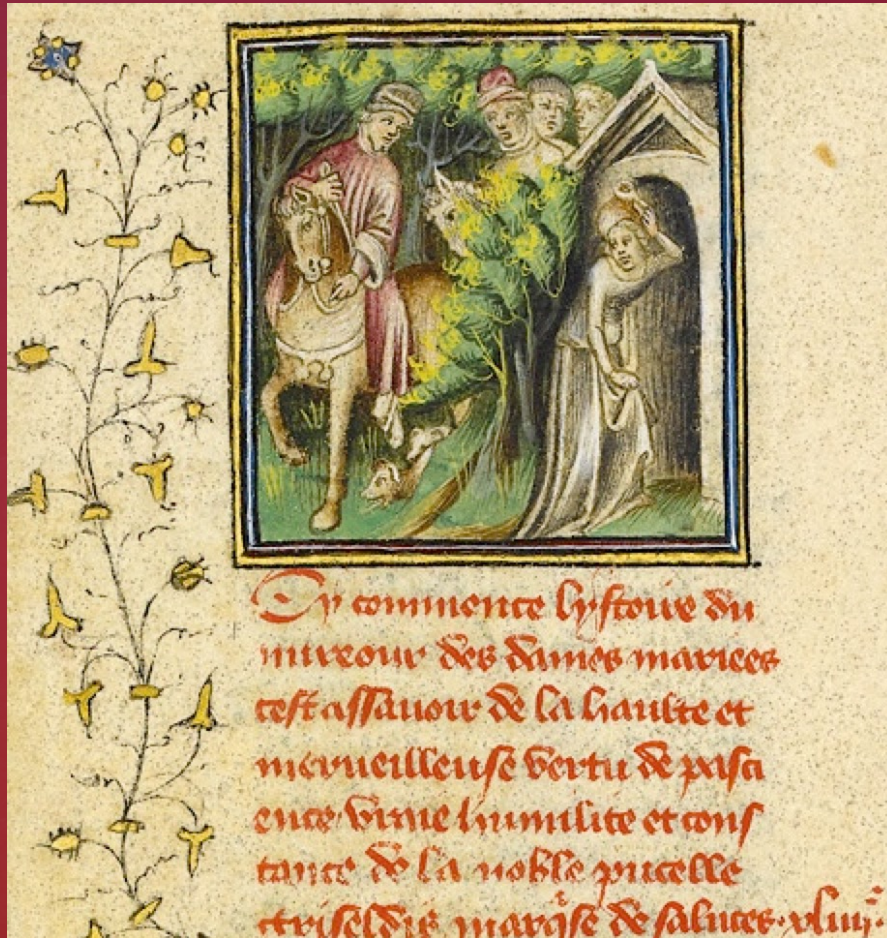 Cy commence lystoire du
mireour des dames mariees
cest assavoir de la haulte et
merveilleuse vertu de pasci
ence vraie humilite et cons
tance de la noble pucelle
Griseldis marq̄se de saluces. xliiij.